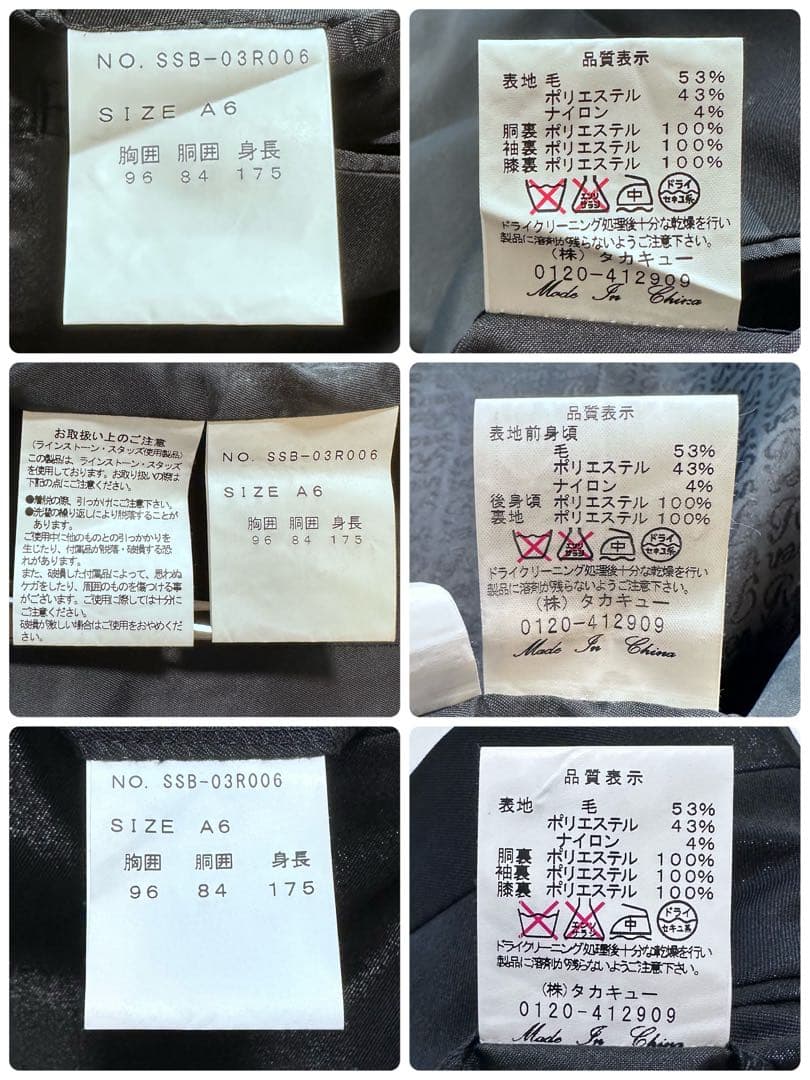 NO. SSB-03R006
SIZE A6
胸囲 胴囲 身長
96 84 175
品質表示
表地 毛 53%
ポリエステル 43%
ナイロン 4%
胴裏 ポリエステル 100%
袖裏 ポリエステル 100%
膝裏 ポリエステル 100%
エンソサラシ 中 ドライセキユ系
ドライクリーニング処理後十分な乾燥を行い
製品に溶剤が残らないようご注意下さい。
(株) タカキュー
0120-412909
Made In China
お取扱い上のご注意
(ラインストーン・スタッズ使用製品)
この製品は、ラインストーン・スタッズ
を使用しております。お取り扱いの際は
下記の点にご注意ください。
●着脱の際、引っかけにご注意下さい。
●洗濯の繰り返しにより脱落することが
あります。
ご使用中に他のものとの引っかかりを
生じたり、付属品が脱落・破損する恐
れがあります。
また、破損した付属品によって、思わぬ
ケガをしたり、周囲のものを傷つける事
がございます。ご使用に際しては十分に
ご注意ください。
破損が激しい場合はご使用をおやめくだ
さい。
NO. SSB-03R006
SIZE A6
胸囲 胴囲 身長
96 84 175
品質表示
表地前身頃
毛 53%
ポリエステル 43%
ナイロン 4%
後身頃 ポリエステル 100%
裏地 ポリエステル 100%
エンソサラシ 中 ドライセキユ系
ドライクリーニング処理後十分な乾燥を行い
製品に溶剤が残らないようご注意下さい。
(株) タカキュー
0120-412909
Made In China
NO. SSB-03R006
SIZE A6
胸囲 胴囲 身長
96 84 175
品質表示
表地 毛 53%
ポリエステル 43%
ナイロン 4%
胴裏 ポリエステル 100%
袖裏 ポリエステル 100%
膝裏 ポリエステル 100%
エンソサラシ 中 ドライセキユ系
ドライクリーニング処理後十分な乾燥を行い
製品に溶剤が残らないようご注意下さい。
(株) タカキュー
0120-412909
Made In China